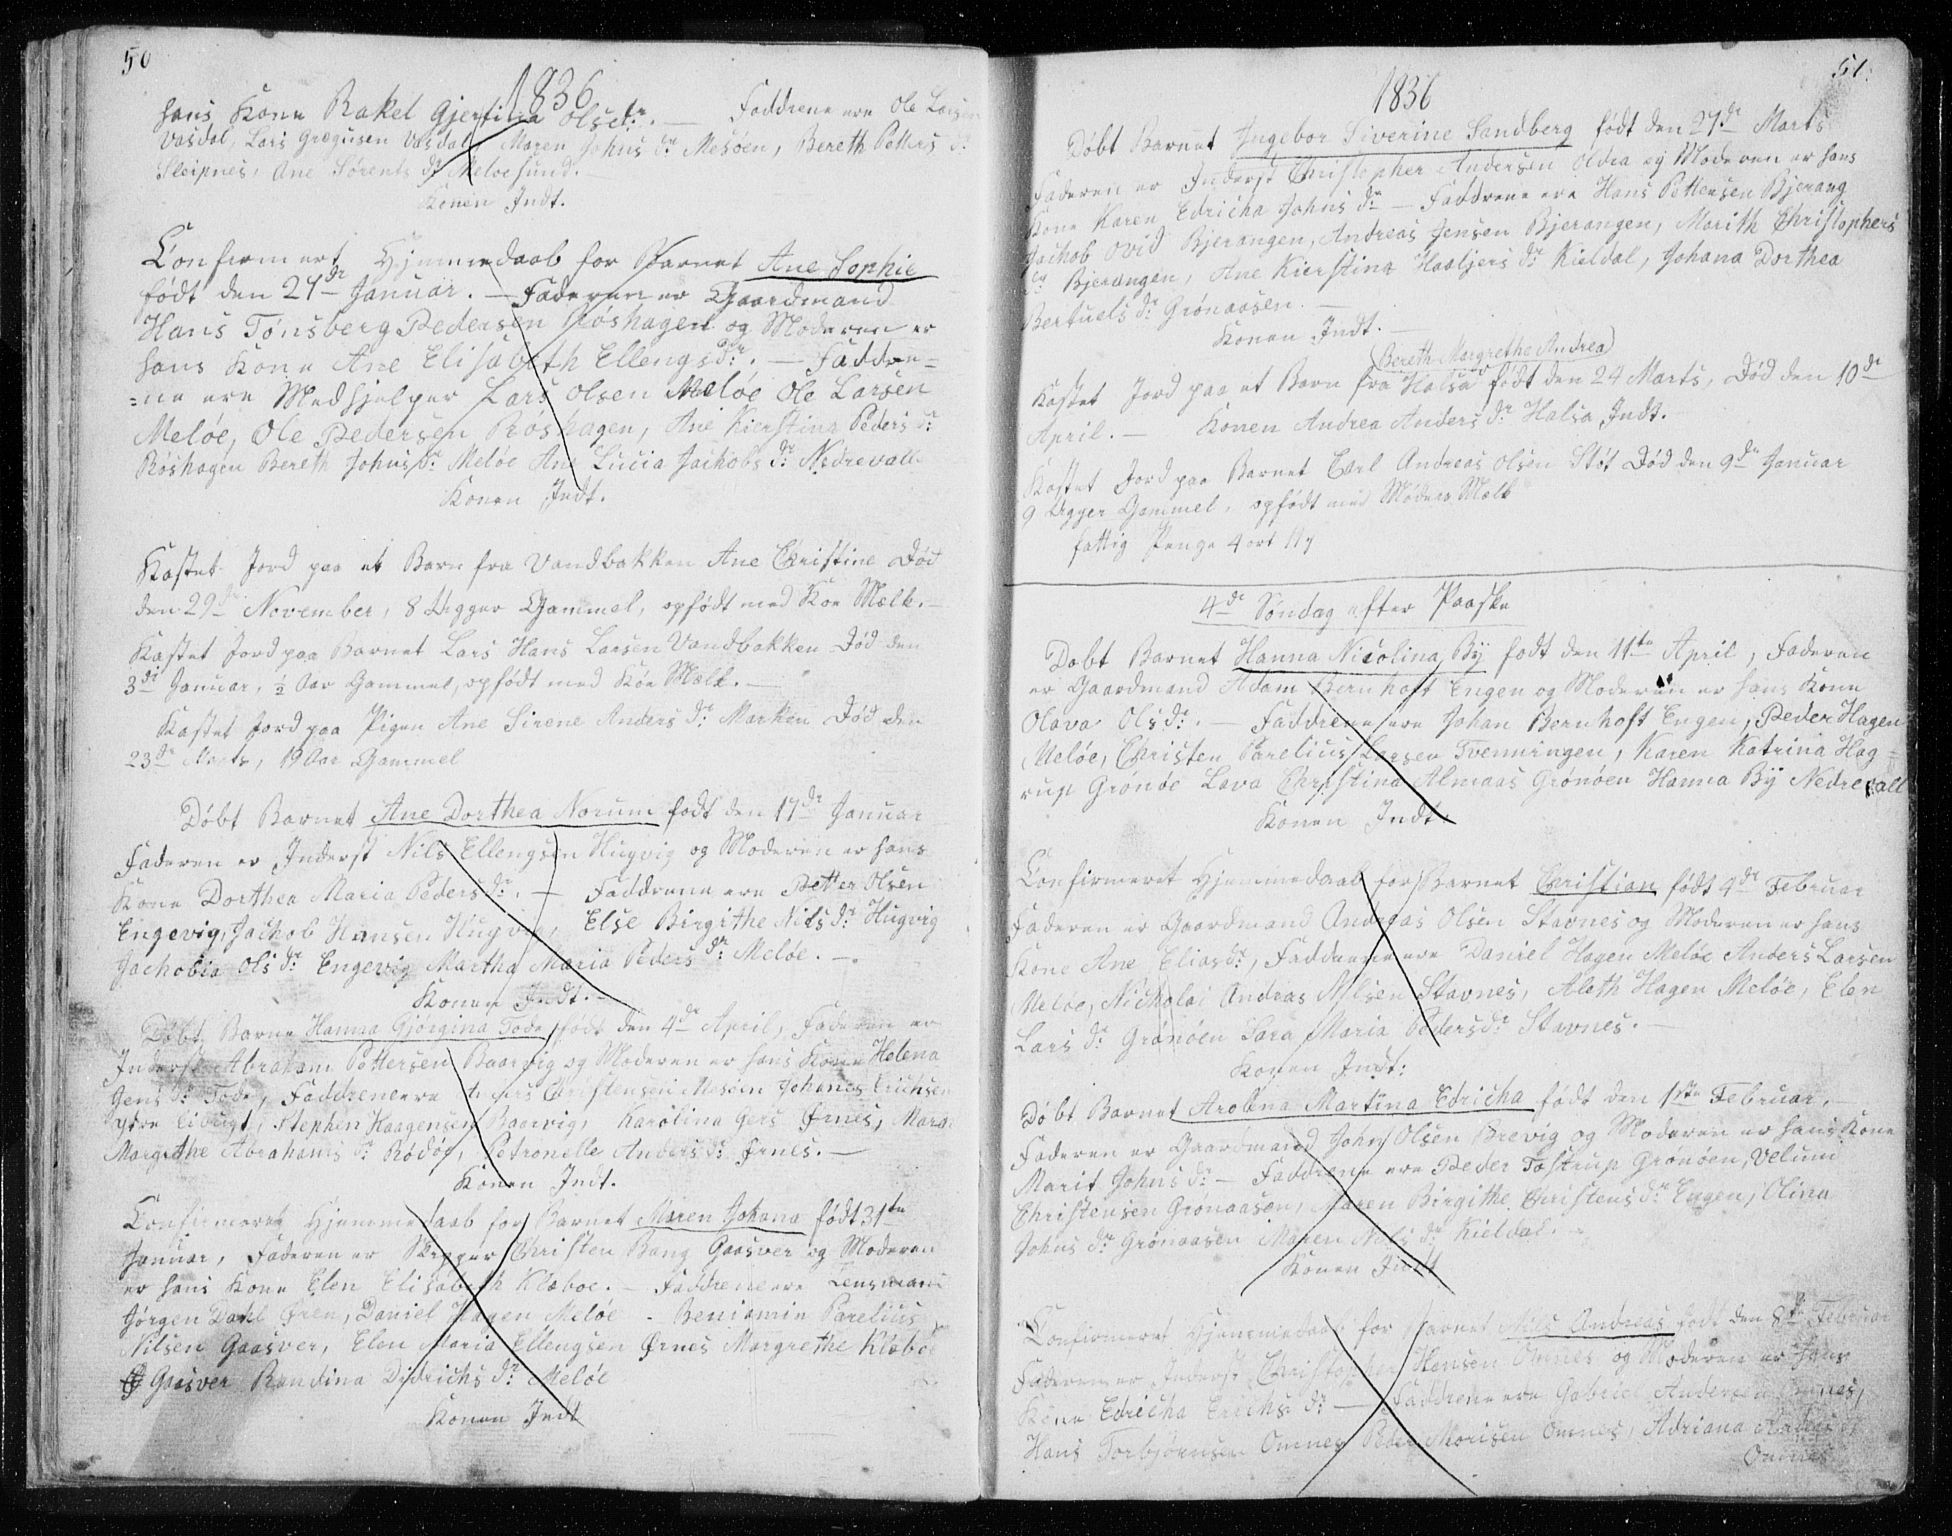 50
1836
hans Kone Rakel Gjertina Olsdr. — Faddrene ere Ole Larsen
Vasdal, Lars Gregusen Vasdal, Maren Johns dr Mesöen, Bereth Petters dr
Sleipnes, Ane Sörents dr Meloesund. —
Konen Indt.
Confirmert Hjemmedaab for Barnet Ane Sophie
födt den 24de Januar. — Faderen er Gaardmand
Hans Tönsberg Pedersen Röshagen og Moderen er
hans Kone Ane Elisabeth Ellengsdr. — Faddre=
=ne ere Medhjelper Lars Olsen Meløe Ole Larsen
Meløe, Ole Pedersen Röshagen, Ane Kierstina Peders dr
Röshagen Bereth Johns dr Meløe Ane Lucia Jachobs dr Nedrevall
Konen Indt.
Kastet Jord paa et Barn fra Vandbakken Ane Christine Död
den 29de November, 8 Ugger Gammel, opfödt med Koe Mælk. —
Kastet Jord paa Barnet Lars Hans Larsen Vandbakken Död den
3de Januar, ½ Aar Gammel, opfödt med Köe Mælk. —
Kastet Jord paa Pigen Ane Sirene Anders dr Marken Död den
23de Marts, 19 Aar Gammel
Döbt Barnet Ane Dorthea Norum födt den 17de Januar
Faderen er Inderst Nils Ellengsen Hugvig og Moderen er hans
Kone Dorthea Maria Peders dr. — Faddrene ere Petter Olsen
Engevig, Jachob Hansen Hugvig, Else Birgithe Nils dr Hugvig
Jachobia Ols dr Engevig Martha Maria Peders dr Meløe. —
Konen Indt. —
Döbt Barne Hanna Gjörgina Tode födt den 4de April, Faderen er
Inderst Abraham Pettersen Baarvig og Moderen er hans Kone Helena
Jens dr Tode, Faddrene ere Christensen Mesöen Johanes Erichsen
ytre Stephen Haagensen Baarvig, Karolina Gers Ørnes,
Margrethe Abrahams dr Rödöe, Petronelle Anders dr Ørnes. —
Konen Indt.
Confirmeret Hjemmedaab for Barnet Maren Johana födt 31te
Januar, Faderen er Skipper Christen Bang Gaasver og Moderen
er hans Kone Elen Elisabeth Klæboe. — Faddrene ere Lensmand
Jörgen Dahl Øren, Daniel Hagen Meløe - Beniamin Parelius
Nilsen Gaasver, Elen Maria Ellengsen Ørnes Margrethe Klæboe
Gaasver Randina Didrichs dr Meløe
Konen Indt
51
1836
Döbt Barnet Ingebor Siverine Sandberg födt den 27de Marts
Faderen er Inderst Christopher Andersen Oldra og Moderen er hans
Kone Karen Edricha Johns dr — Faddrene ere Hans Pettersen Bjerang
Jachob Ovid Bjerangen, Andreas Jensen Bjerangen, Marith Christophers
dr Bjerangen, Ane Kierstina Haaljers dr Kieldal, Johana Dorthea
Bertuels dr Grönaasen. —
Konen Indt. —
(Bereth Margrethe Andrea)
Kastet Jord paa et Barn fra Halsa födt den 24 Marts, Död den 10de
April. — Konen Andrea Anders dr Halsa Indt.
Kastet Jord paa Barnet Carl Andreas Olsen Stöt Död den 9de Januar
9 Ugger Gammel, opfödt med Moders Mælk
fattig Penge 4 ort
4de Söndag efter Paaske
Döbt Barnet Hanna Nicolina By födt den 11te April, Faderen
er Gaardmand Adam Bernhoft Engen og Moderen er hans Kone
Olava Olsdr. — Faddrene ere Johan Bernhoft Engen, Peder Hagen
Meløe, Christen Parelius Larsen Tvenningen, Karen Katrina Hag=
rup Grönöe Lava Christina Almaas Grönöen Hanna By Nedrevall
Konen Indt.
Confirmeret Hjemmedaab for Barnet Christian födt 4de Februar
Faderen er Gaardmand Andreas Olsen Stavnes og Moderen er hans
Kone Ane Eliasdr, Faddrene ere Daniel Hagen Meløe Anders Larsen
Meløe, Nickolai Andreas Nilsen Stavnes, Aleth Hagen Meløe, Elen
Lars dr Grönöen Sara Maria Pedersdr Stavnes. —
Konen Indt:
Döbt Barnet Arolina Martina Edricha födt den 1ste Februar. —
Faderen er Gaardmand John Olsen Brevig og Moderen er hans Kone
Marit Johns dr — Faddrene ere Peder Tostrup Grönöen, Velum
Christensen Grönaasen, Maren Birgithe Christens dr Engen, Olina
Johns dr Grönaasen Maren Nils dr Kieldal. —
Konen Indt
Confirmeret Hjemmedaab for Barnet Nils Andreas födt den 8de Februar
Faderen er Inderst Christopher Hensen Omnes og Moderen er hans
Kone Edricha Erichs dr — Faddrene ere Gabriel Andersen Omnes,
Hans Torbjörnsen Omnes Peder Morisen Omnes, Adriana Andreas
Omnes